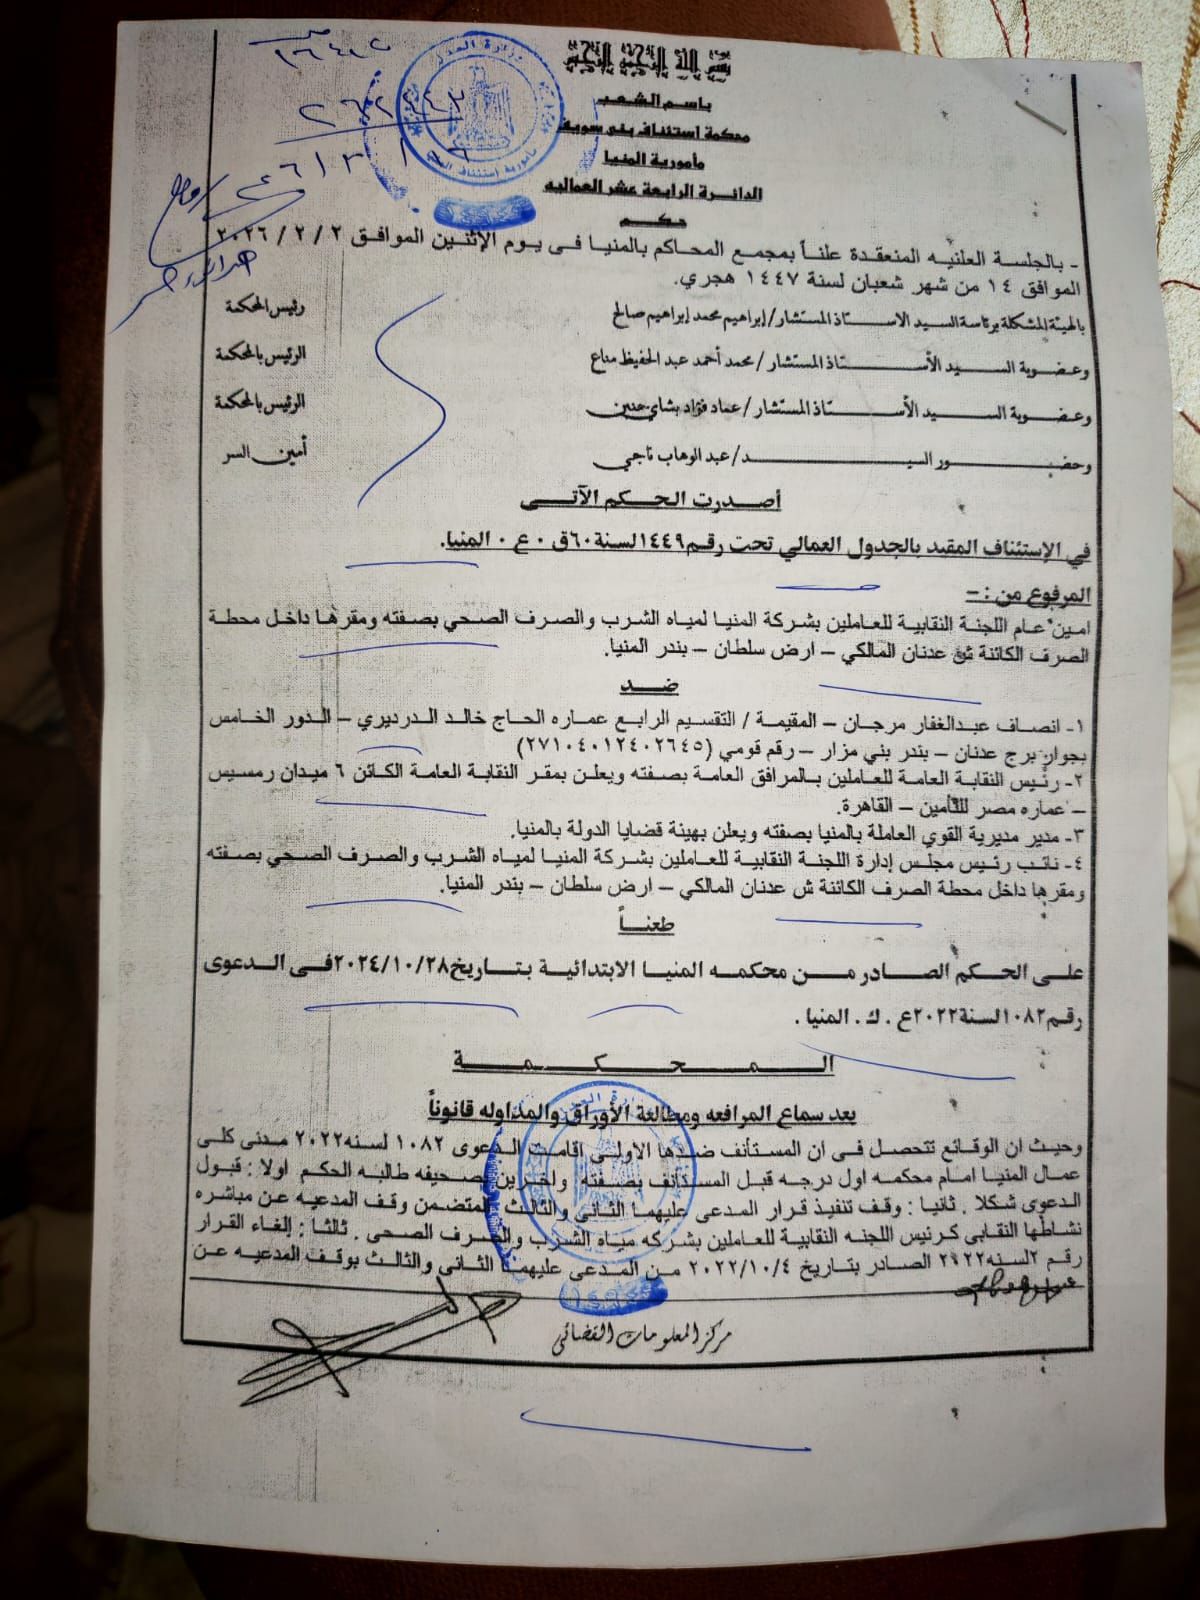 بسم الله الرحمن الرحيم
باسم الشعب
محكمة استئناف بنى سويف
مأمورية المنيا
الدائرة الرابعة عشر العماليه
حكم
- بالجلسة العلنيه المنعقدة علناً بمجمع المحاكم بالمنيا فى يوم الإثنين الموافق ٢ / ٢ / ٢٠٢٦
الموافق ١٤ من شهر شعبان لسنة ١٤٤٧ هجري.
بالهيئة المشكلة برئاسة السيد الاستاذ المستشار/ إبراهيم محمد إبراهيم صالح رئيس المحكمة
وعضوية السيد الأستاذ المستشار / محمد أحمد عبد الحفيظ مناع الرئيس بالمحكمة
وعضوية السيد الأستاذ المستشار / عماد فؤاد بشاي حنين الرئيس بالمحكمة
وحضور السيد/ عبد الوهاب ناجي أمين السر
أصدرت الحكم الآتى
في الإستئناف المقيد بالجدول العمالي تحت رقم ١٤٤٩ لسنة ٦٠ق ٠ ع ٠ المنيا.
المرفوع من :-
امين عام اللجنة النقابية للعاملين بشركة المنيا لمياه الشرب والصرف الصحي بصفته ومقرها داخل محطة
الصرف الكائنة ش عدنان المالكي – ارض سلطان – بندر المنيا.
ضد
١- انصاف عبدالغفار مرجان – المقيمة / التقسيم الرابع عماره الحاج خالد الدرديري – الدور الخامس
بجوار برج عدنان – بندر بني مزار – رقم قومي (٢٧١٠٤٠١٢٤٠٢٦٤٥)
٢- رئيس النقابة العامة للعاملين بالمرافق العامة بصفته ويعلن بمقر النقابة العامة الكائن ٦ ميدان رمسيس
– عماره مصر للتأمين – القاهرة.
٣- مدير مديرية القوي العاملة بالمنيا بصفته ويعلن بهيئة قضايا الدولة بالمنيا.
٤- نائب رئيس مجلس إدارة اللجنة النقابية للعاملين بشركة المنيا لمياه الشرب والصرف الصحي بصفته
ومقرها داخل محطة الصرف الكائنة ش عدنان المالكي – ارض سلطان – بندر المنيا.
طعناً
على الحكم الصادر من محكمه المنيا الابتدائية بتاريخ ٢٠٢٤/١٠/٢٨ فى الدعوى
رقم ١٠٨٢ لسنة ٢٠٢٢ع . ك . المنيا .
المحكمة
بعد سماع المرافعه ومطالعة الأوراق والمداوله قانوناً
وحيث ان الوقائع تتحصل فى ان المستأنف ضدها الاولى اقامت الدعوى ١٠٨٢ لسنه ٢٠٢٢ مدنى كلى
عمال المنيا امام محكمه اول درجه قبل المستأنف بصفته واخرين بصحيفه طالبه الحكم اولا : قبول
الدعوى شكلا . ثانيا : وقف تنفيذ قرار المدعى عليهما الثانى والثالث المتضمن وقف المدعيه عن مباشره
نشاطها النقابى كرئيس اللجنه النقابية للعاملين بشركه مياه الشرب والصرف الصحى . ثالثا : إلغاء القرار
رقم ٢ لسنه ٢٠٢٢ الصادر بتاريخ ٢٠٢٢/١٠/٤ من المدعى عليهما الثانى والثالث بوقف المدعيه عن
مركز المعلومات القضائى